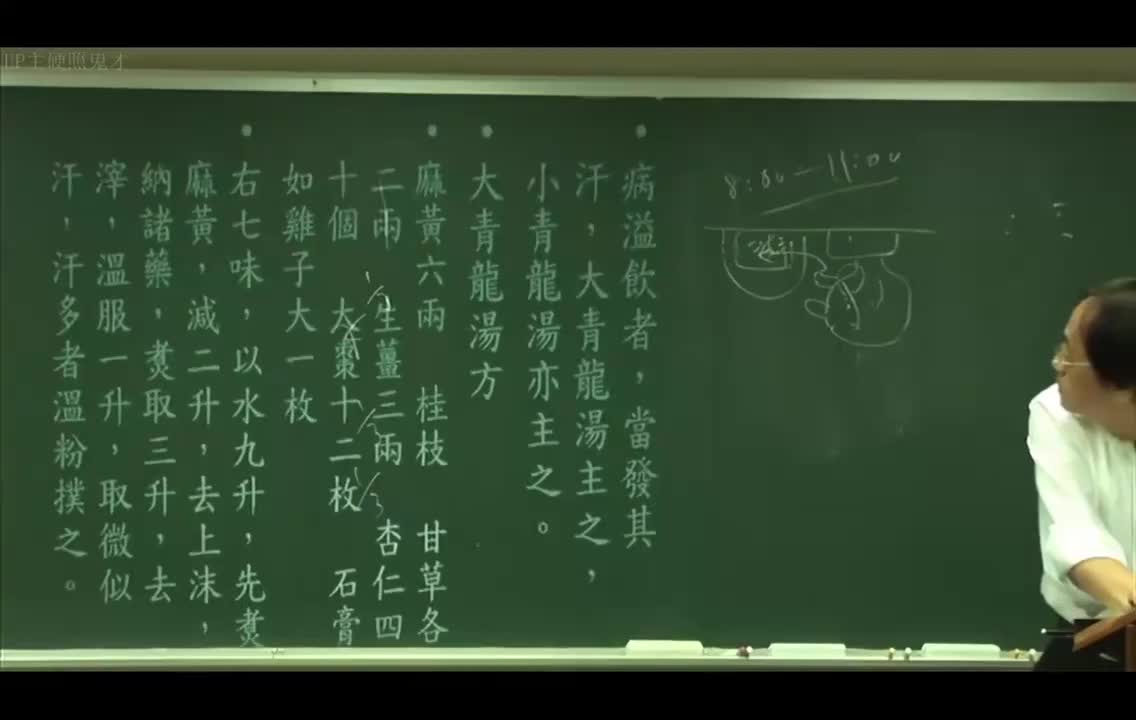 UP主硬照鬼才
病溢飲者，當發其
汗，大青龍湯主之，
小青龍湯亦主之。
大青龍湯方
麻黃六兩 桂枝 甘草各
二兩 生薑三兩 杏仁四
十個 大棗十二枚 石膏
如雞子大一枚
右七味，以水九升，先煑
麻黃，減二升，去上沫，
納諸藥，煑取三升，去
滓，溫服一升，取微似
汗，汗多者溫粉撲之。
8:00-11:00